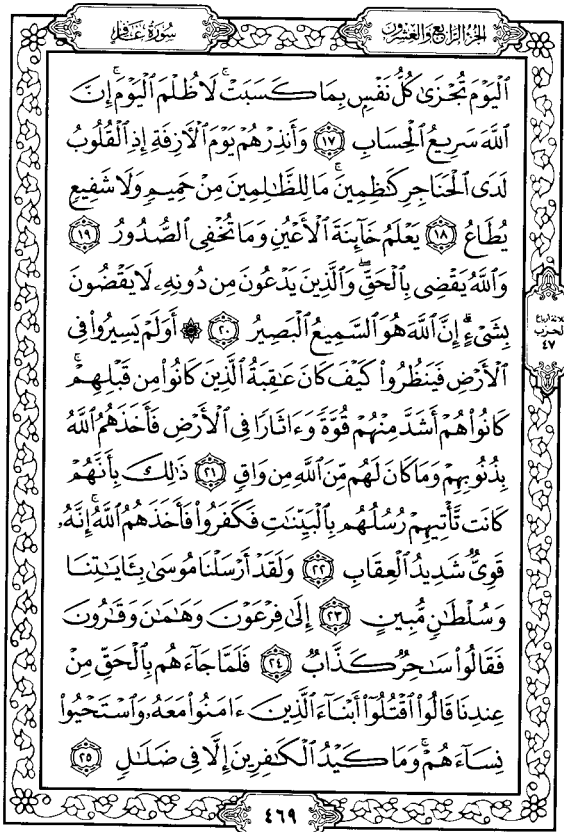 الجزء الرابع والعشرون
سورة غافر
ٱلْيَوْمَ تُجْزَىٰ كُلُّ نَفْسٍۭ بِمَا كَسَبَتْ ۚ لَا ظُلْمَ ٱلْيَوْمَ ۚ إِنَّ
ٱللَّهَ سَرِيعُ ٱلْحِسَابِ ١٧ وَأَنذِرْهُمْ يَوْمَ ٱلْـَٔازِفَةِ إِذِ ٱلْقُلُوبُ
لَدَى ٱلْحَنَاجِرِ كَـٰظِمِينَ ۚ مَا لِلظَّـٰلِمِينَ مِنْ حَمِيمٍ وَلَا شَفِيعٍ
يُطَاعُ ١٨ يَعْلَمُ خَآئِنَةَ ٱلْأَعْيُنِ وَمَا تُخْفِى ٱلصُّدُورُ ١٩
وَٱللَّهُ يَقْضِى بِٱلْحَقِّ ۖ وَٱلَّذِينَ يَدْعُونَ مِن دُونِهِۦ لَا يَقْضُونَ
بِشَىْءٍ ۗ إِنَّ ٱللَّهَ هُوَ ٱلسَّمِيعُ ٱلْبَصِيرُ ٢٠ ۞ أَوَلَمْ يَسِيرُوا۟ فِى
ٱلْأَرْضِ فَيَنظُرُوا۟ كَيْفَ كَانَ عَـٰقِبَةُ ٱلَّذِينَ كَانُوا۟ مِن قَبْلِهِمْ ۚ
كَانُوا۟ هُمْ أَشَدَّ مِنْهُمْ قُوَّةً وَءَاثَارًا فِى ٱلْأَرْضِ فَأَخَذَهُمُ ٱللَّهُ
بِذُنُوبِهِمْ وَمَا كَانَ لَهُم مِّنَ ٱللَّهِ مِن وَاقٍ ٢١ ذَٰلِكَ بِأَنَّهُمْ
كَانَت تَّأْتِيهِمْ رُسُلُهُم بِٱلْبَيِّنَـٰتِ فَكَفَرُوا۟ فَأَخَذَهُمُ ٱللَّهُ ۚ إِنَّهُۥ
قَوِىٌّ شَدِيدُ ٱلْعِقَابِ ٢٢ وَلَقَدْ أَرْسَلْنَا مُوسَىٰ بِـَٔايَـٰتِنَا
وَسُلْطَـٰنٍ مُّبِينٍ ٢٣ إِلَىٰ فِرْعَوْنَ وَهَـٰمَـٰنَ وَقَـٰرُونَ
فَقَالُوا۟ سَـٰحِرٌ كَذَّابٌ ٢٤ فَلَمَّا جَآءَهُم بِٱلْحَقِّ مِنْ
عِندِنَا قَالُوا۟ ٱقْتُلُوٓا۟ أَبْنَآءَ ٱلَّذِينَ ءَامَنُوا۟ مَعَهُۥ وَٱسْتَحْيُوا۟
نِسَآءَهُمْ ۚ وَمَا كَيْدُ ٱلْكَـٰفِرِينَ إِلَّا فِى ضَلَـٰلٍ ٢٥
ثلاثة أرباع
الحزب
٤٧
٤٦٩